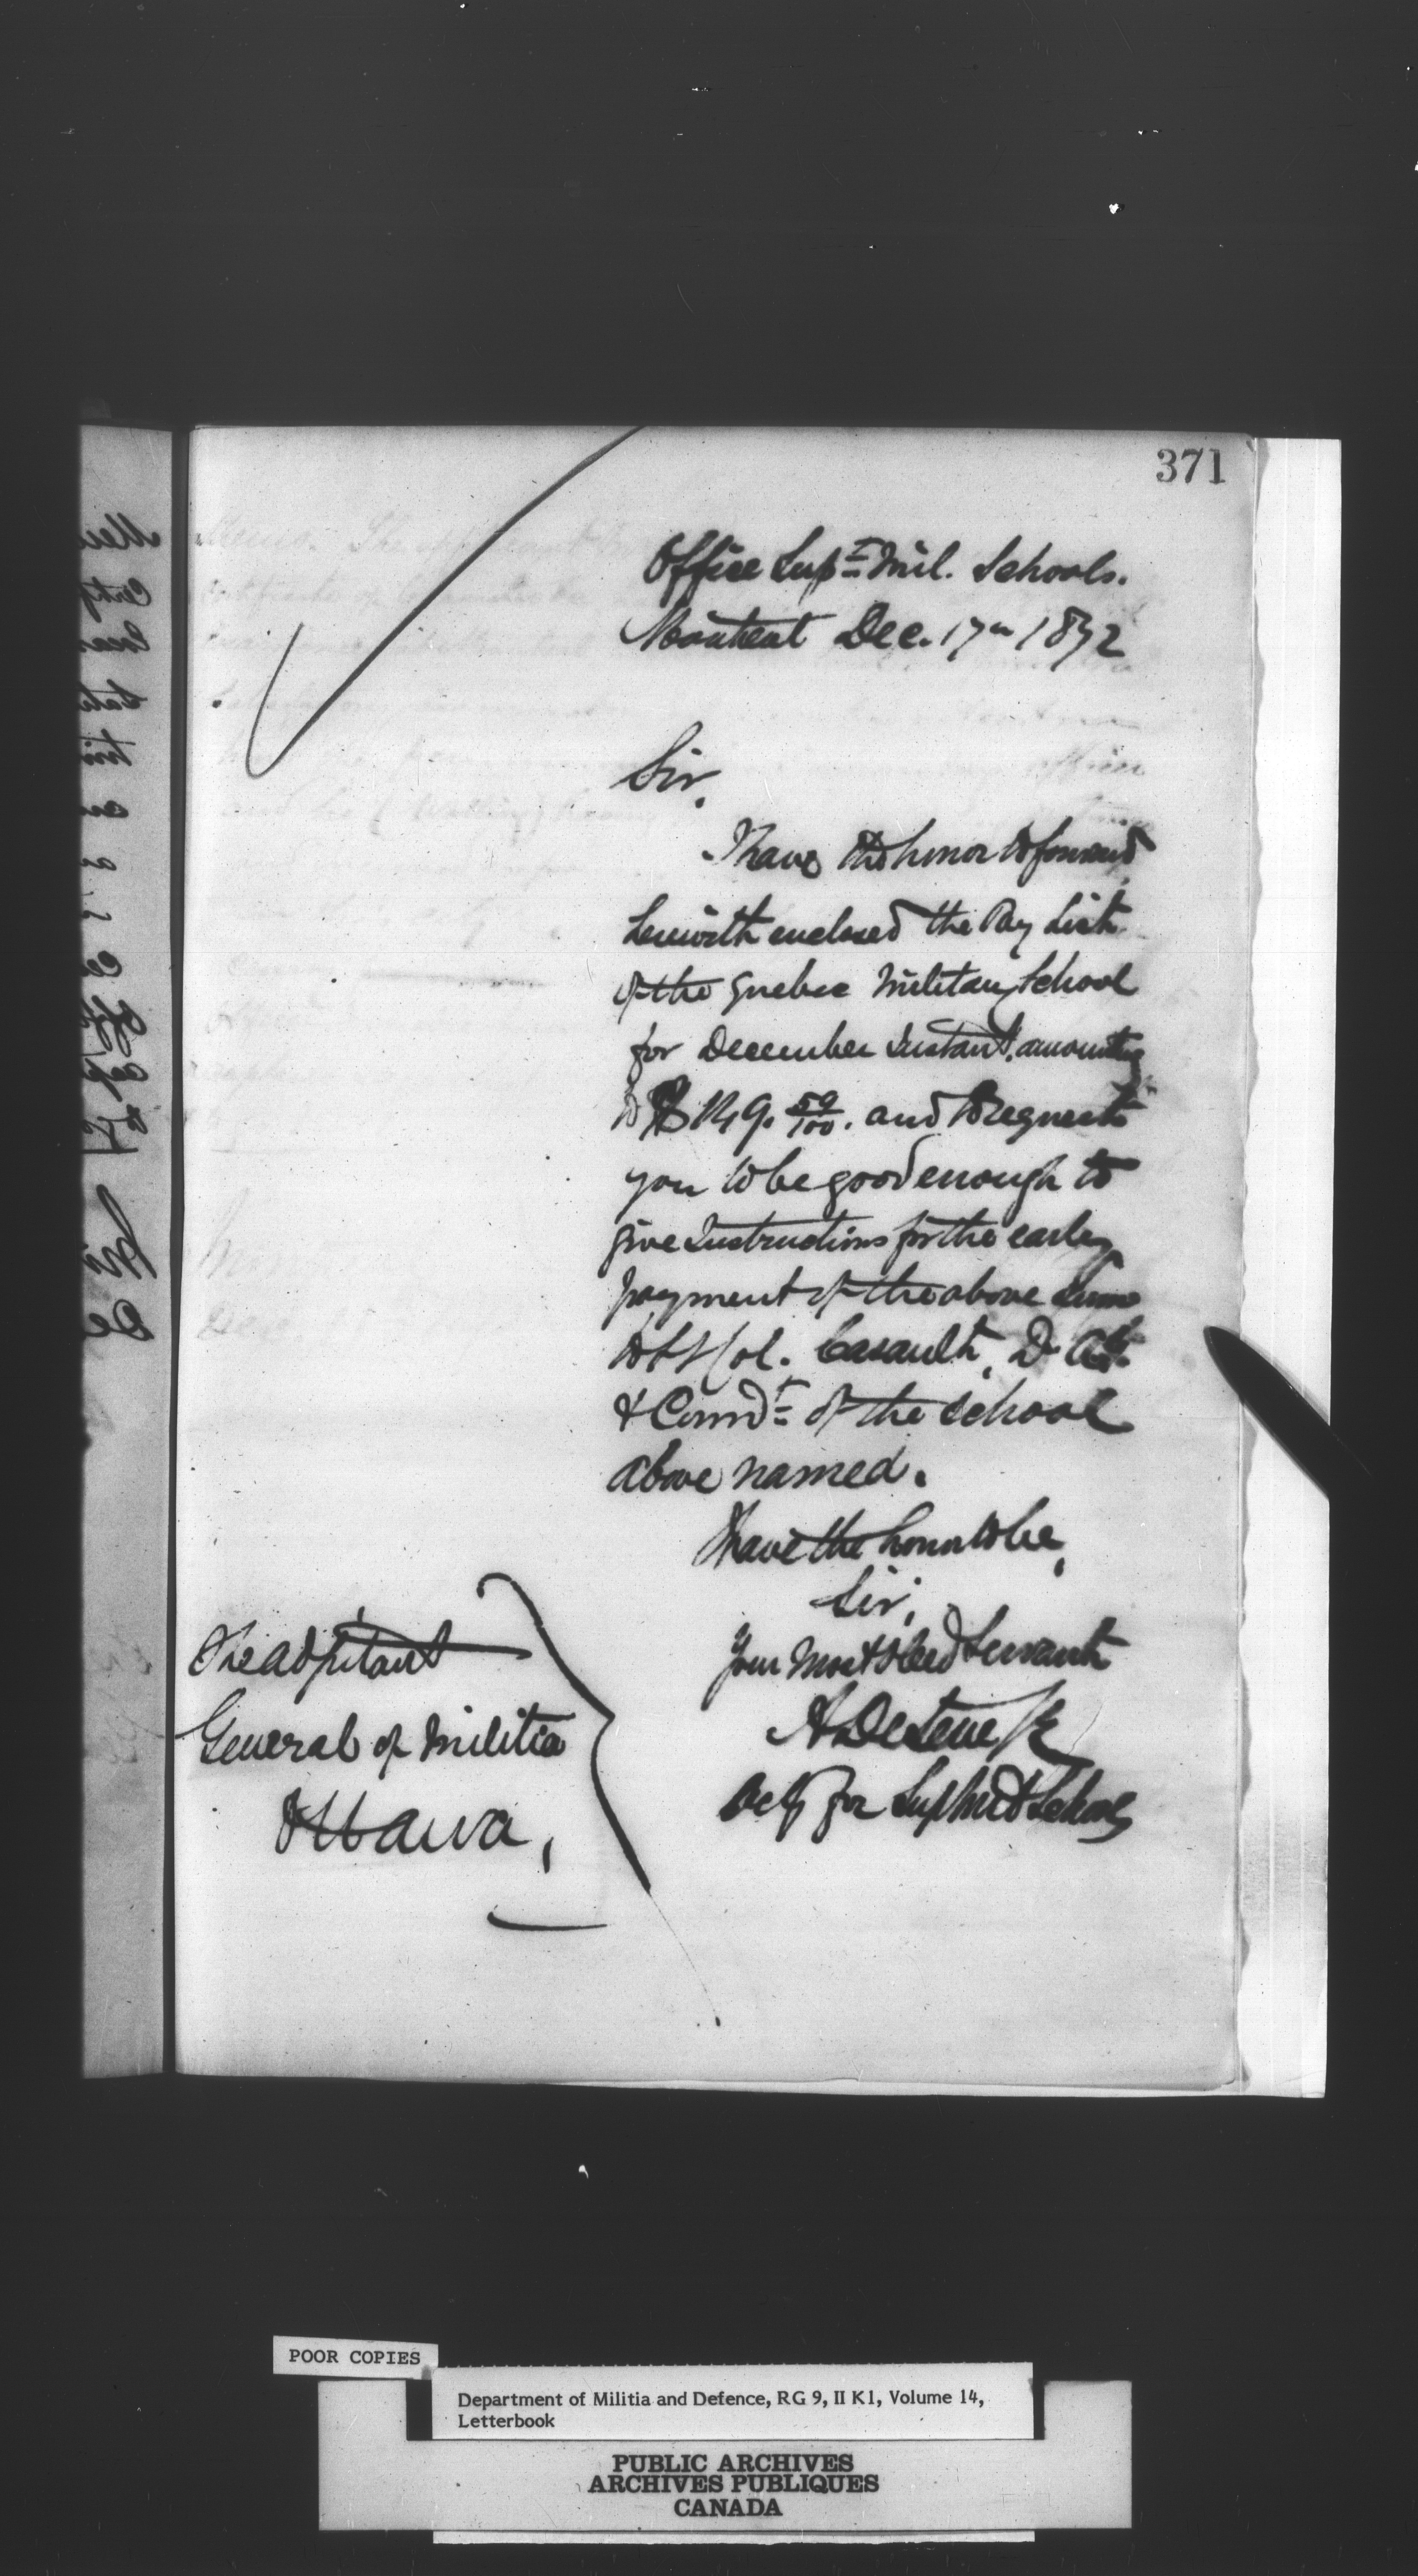 371
Office Supt Mil. Schools.
Montreal Dec. 17th 1872
Sir,
I have the honor to forward
herewith enclosed the Pay List
of the Quebec Military School
for December Instant, amounting
to $ 59/100. and to request
you to be good enough to
give Instructions for the early
payment of the above sum
to Lt Col. Casault, D.A.G.
& Commdt of the School
above named.
I have the honor to be,
Sir,
Your Most Obed Servant
for Supt Mil Schools
The Adjutant
General of Militia
Ottawa,
POOR COPIES
Department of Militia and Defence, RG 9, II K1, Volume 14,
Letterbook
PUBLIC ARCHIVES
ARCHIVES PUBLIQUES
CANADA